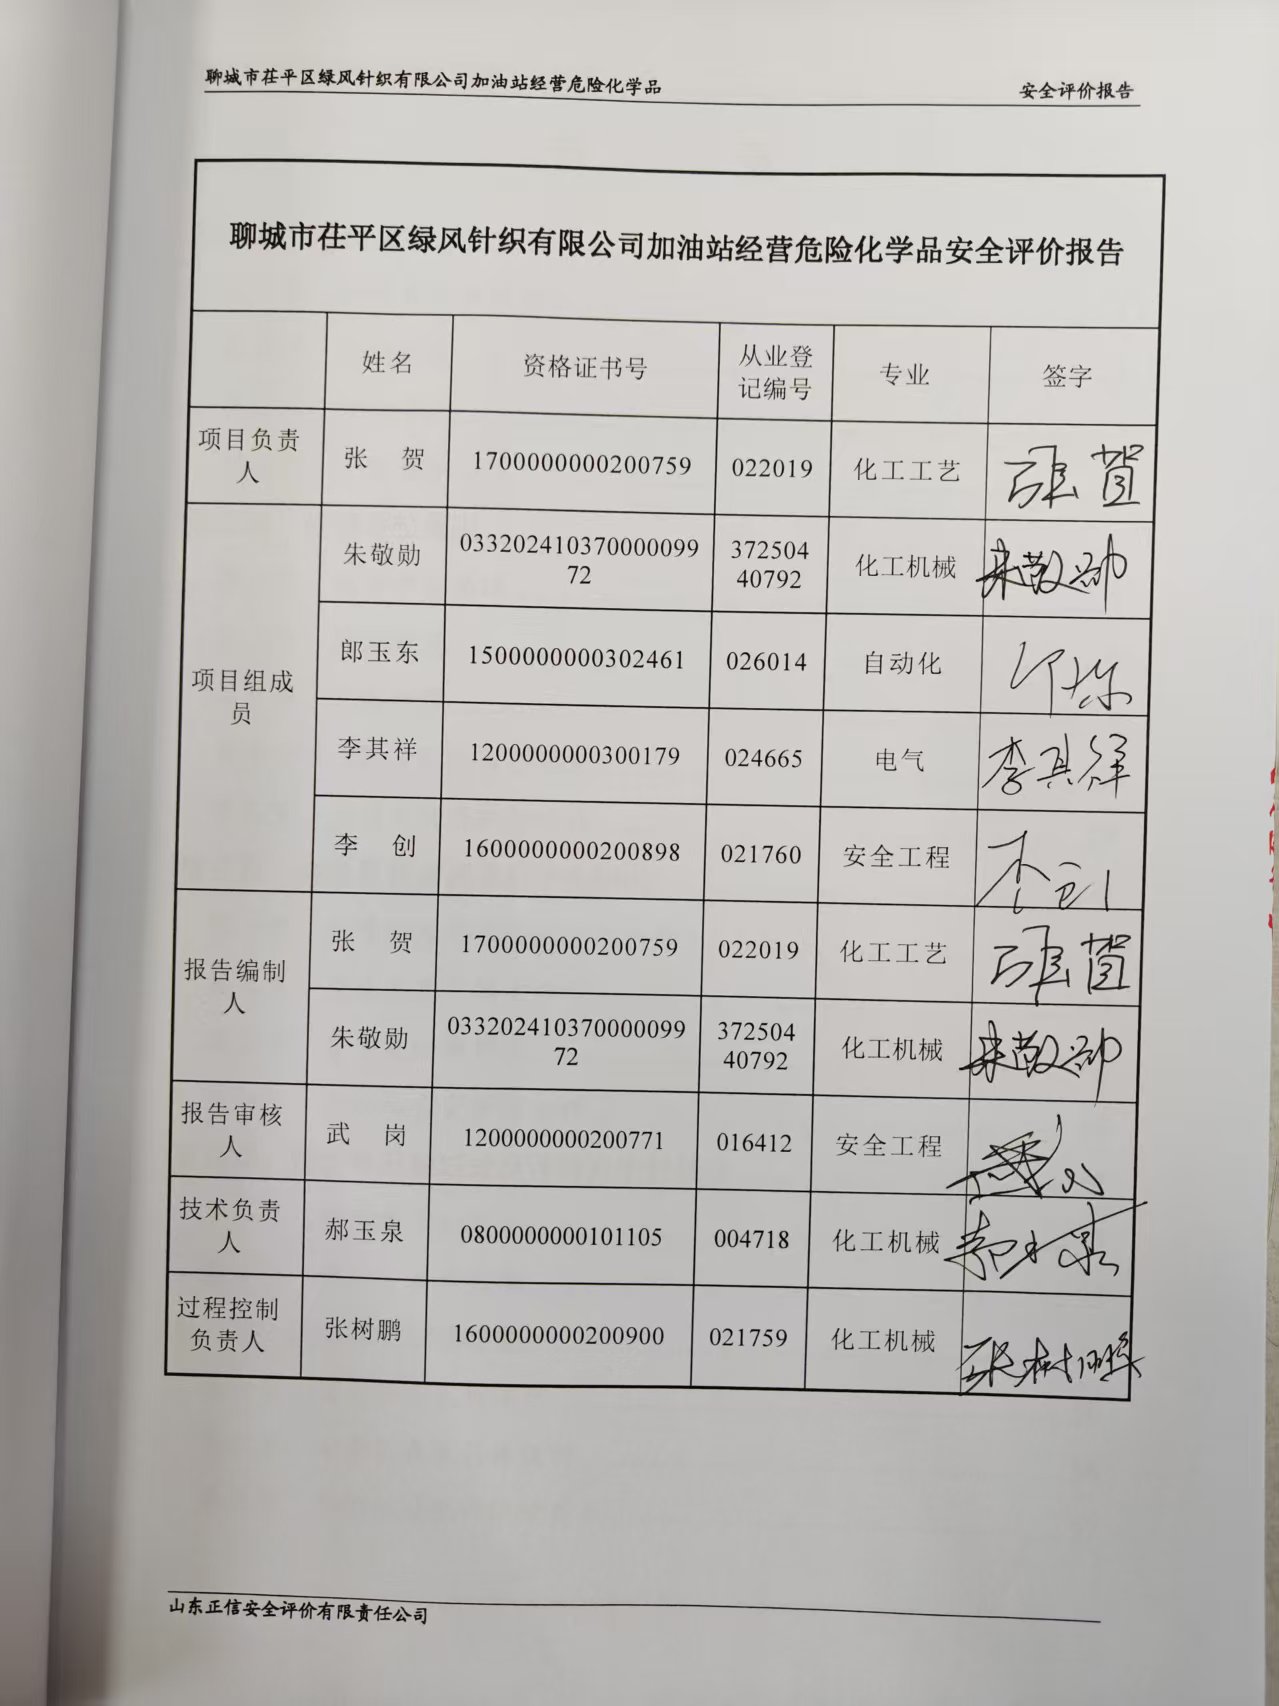 聊城市茌平区绿风针织有限公司加油站经营危险化学品 安全评价报告
聊城市茌平区绿风针织有限公司加油站经营危险化学品安全评价报告
姓名 资格证书号 从业登记编号 专业 签字
项目负责人 张 贺 17000000000200759 022019 化工工艺 张贺
项目组成员 朱敬勋 03320241037000009972 37250440792 化工机械 朱敬勋
郎玉东 1500000000302461 026014 自动化
李其祥 1200000000300179 024665 电气 李其祥
李 创 1600000000200898 021760 安全工程 李创
报告编制人 张 贺 17000000000200759 022019 化工工艺 张贺
朱敬勋 03320241037000009972 37250440792 化工机械 朱敬勋
报告审核人 武 岗 1200000000200771 016412 安全工程
技术负责人 郝玉泉 0800000000101105 004718 化工机械 郝玉泉
过程控制负责人 张树鹏 1600000000200900 021759 化工机械 张树鹏
山东正信安全评价有限责任公司